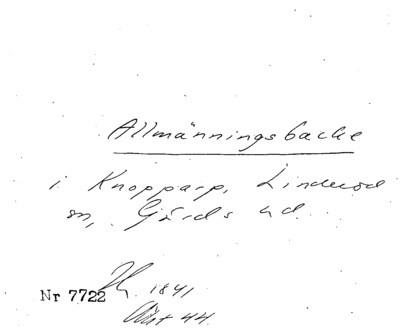 Allmänningsbacke
i Knopparp, Linderöd
sn, Gärds hd.
1841
Nr 7722
44